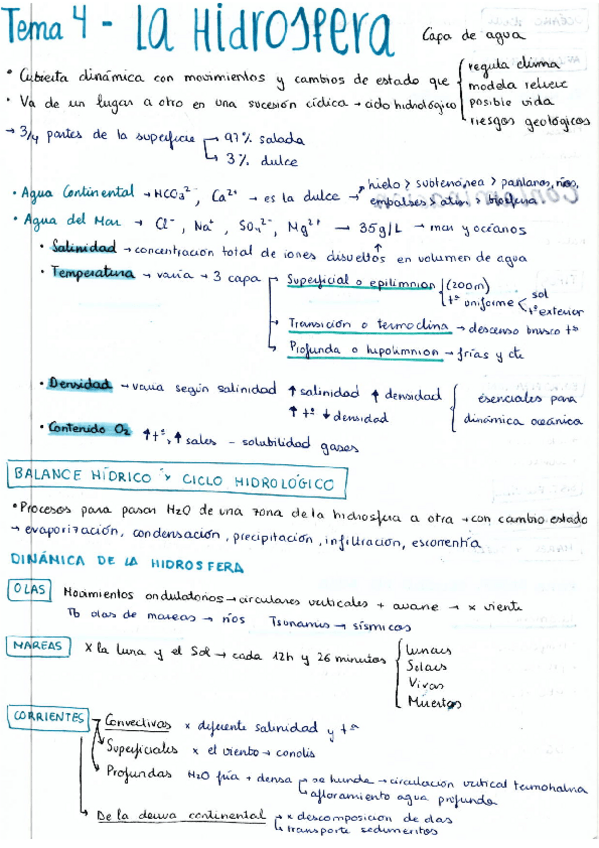 Tema 4 - La Hidrosfera Capa de agua
• Cubierta dinámica con movimientos y cambios de estado que regula clima
modela relieve
• Va de un lugar a otro en una sucesión cíclica → ciclo hidrológico posible vida
riesgos geológicos
→ 3/4 partes de la superficie → 97% salada
→ 3% dulce
• Agua Continental → HCO3²⁻, Ca²⁺ → es la dulce → hielo > subterránea > pantanos, ríos,
embalses > atm > biosfera
• Agua del Mar → Cl⁻, Na⁺, SO4²⁻, Mg²⁺ → 35g/L → mar y océanos
• Salinidad → concentración total de iones disueltos en volumen de agua
• Temperatura → varía → 3 capa → Superficial o epilimnion (200m)
tª uniforme < sol
tª exterior
→ Transición o termoclina → descenso brusco tª
→ Profunda o hipolimnion → frías y cte
• Densidad → varia según salinidad ↑ salinidad ↑ densidad esenciales para
↑ tª ↓ densidad dinámica oceánica
• Contenido O2 ↑tª, ↑ sales - solubilidad gases
BALANCE HÍDRICO y CICLO HIDROLÓGICO
• Procesos para pasar H2O de una zona de la hidrosfera a otra → con cambio estado
→ evaporización, condensación, precipitación, infiltración, escorrentía
DINÁMICA DE LA HIDROSFERA
OLAS Movimientos ondulatorios → circulares verticales + avance → x viento
Tb olas de mareas → ríos Tsunamis → sísmicos
MAREAS x la luna y el Sol → cada 12h y 26 minutos Lunares
Solares
Vivas
Muertas
CORRIENTES → Convectivas x diferente salinidad y tª
Superficiales x el viento → coriolis
Profundas H2O fría + densa → se hunde → circulación vertical termohalina
→ afloramiento agua profunda
→ De la deriva continental → x descomposicion de olas
→ transporte sedimentos